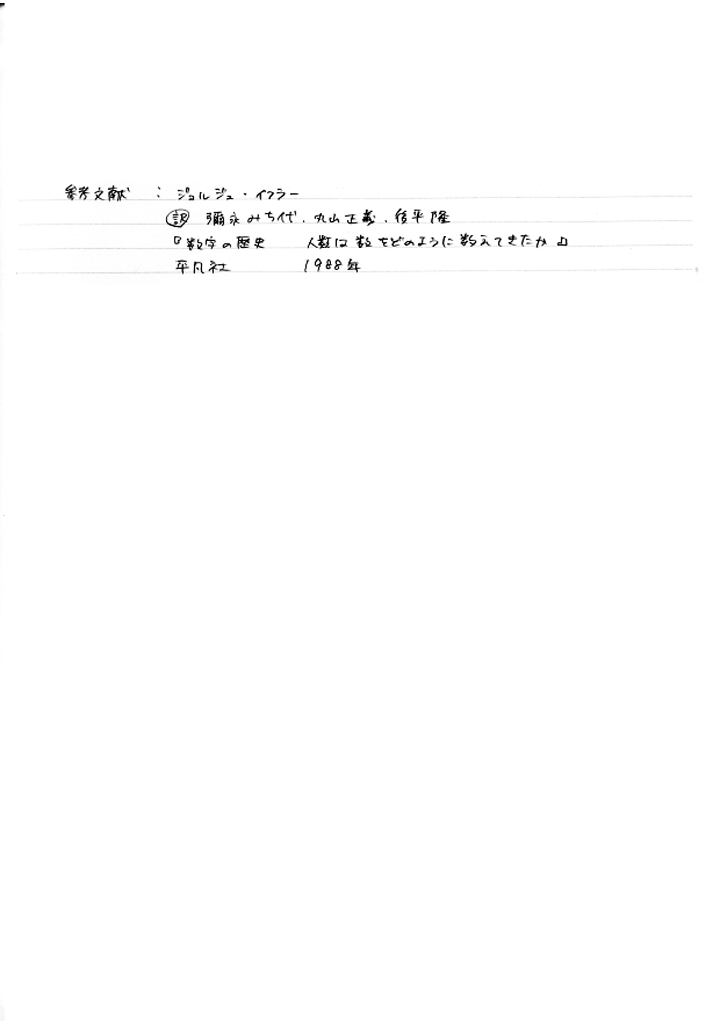 参考文献 : ジョルジュ・イフラー
訳 彌永みち代、丸山正義、後平隆
『数字の歴史 人数は数をどのように数えてきたか』
平凡社 1988年